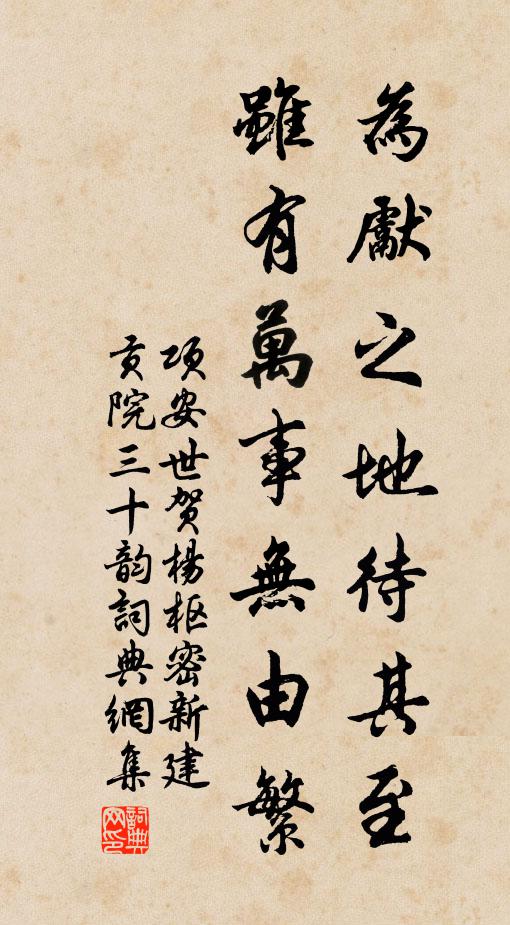 為獻之地待其至
雖有萬事無由繁
项安世贺楊枢密新建
贡院三十韵詞典網集
詞典网印